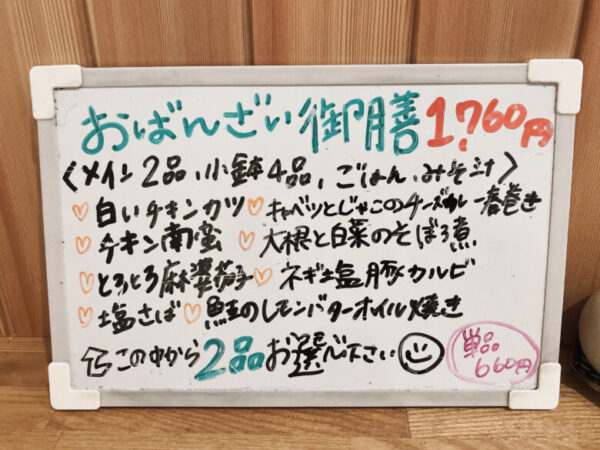 おばんざい御膳 1,760円
〈メイン2品、小鉢4品、ごはん、みそ汁〉
♡白いチキンカツ ♡キャベツとじゃこのチーズカレー春巻き
♡チキン南蛮 ♡大根と白菜のそぼろ煮
♡とろとろ麻婆茄子 ♡ネギ塩豚カルビ
♡塩さば ♡鮭のレモンバターオイル焼き
この中から2品お選び下さい
単品
660円